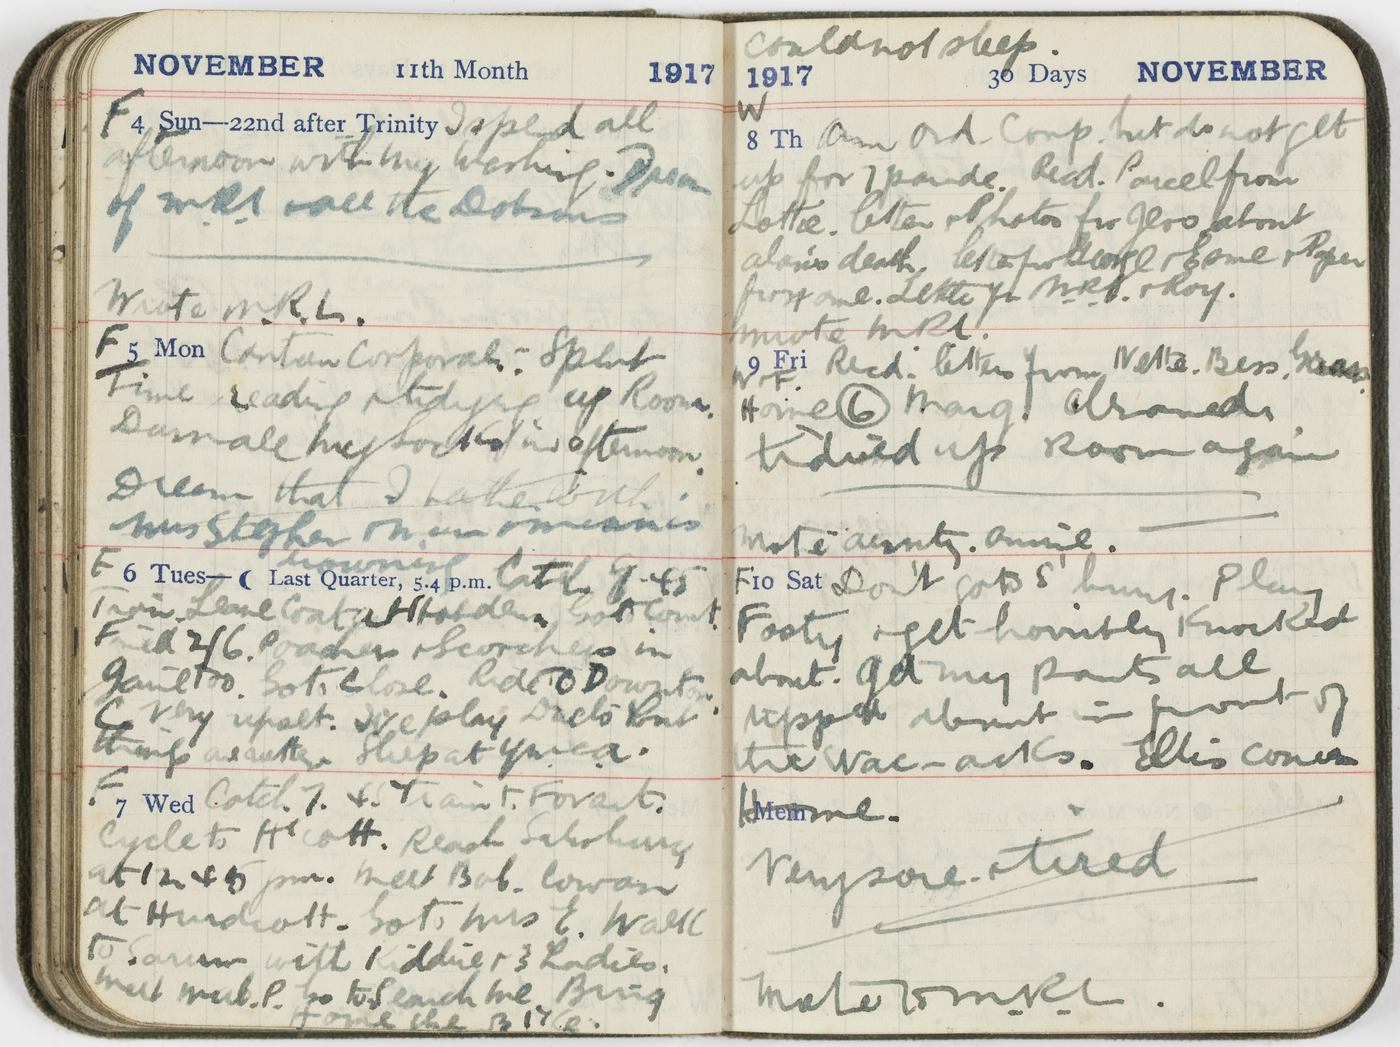 NOVEMBER 11th Month 1917
F 4 Sun—22nd after Trinity I spend all
afternoon with my washing. Dream
of MRL & all the Dobsons
Wrote M.R.L.
F 5 Mon Canteen Corporal:- Spent
Time reading & tidying up Room.
my socks in afternoon.
Dream that I bathe with
Mrs Stephen
drowning
F 6 Tues—☾ Last Quarter, 5.4 p.m. Catch 9-45
Train. Leave Coat at Got Court.
Fined 2/6. Poachers & Scorchers in
Gaol too. Go to Close. Ride to Downton.
C. very upset. We play
things Sleep at Ymca.
F 7 Wed Catch 7.45 Train F.
Cycle to Hcott. Reach Salisbury
at 12.45 pm. Meet Bob. Cowan
at Hurdcott. Go to Mrs E. Walk
To Sarum with Kiddies & 3 Ladies.
Meet P. Go to Search me. Bring
Home the Bike.
could not sleep.
1917 30 Days NOVEMBER
W
8 Th Am Ord. Corp. but do not get
up for 7 parade. Recd. Parcel from
Lottie. letter & Photos fr about
death. George & Esme & Paper
from Letter fr M.R.L. & Roy.
Wrote MRL.
9 Fri Recd. letters from Nette. Bess.
W. F.
Home ⑥ Marg.
tidied up Room again
Wrote aunty. annie.
F 10 Sat Don't go to S'bury. Play
Footy & get horribly Knocked
about. Get my pants all
ripped about in front of
the Wac-acks. Ellis comes
Mem Home.
Very sore & tired
Wrote to MRL.